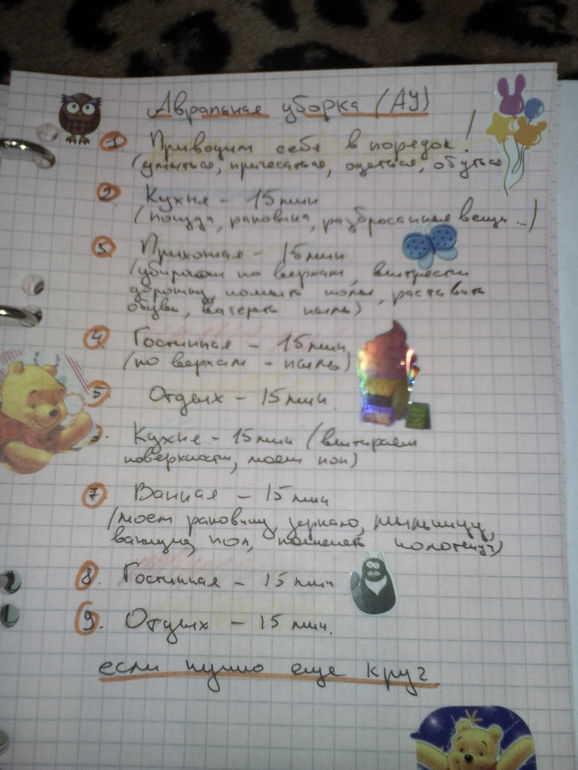 Авральная уборка (АУ)
1. Приводим себя в порядок!
(умыться, причесаться, одеться, обуться
2. Кухня - 15 мин
(посуда, раковина, разбросанные вещи...)
3 Прихожая - 15 мин
(убираем по верхам, вытрясти
дорожку, помыть полы, расставить
обувь, вытереть пыль)
4. Гостинная - 15 мин
(по верхам - пыль)
5 Отдых - 15 мин.
Кухня - 15 мин (вытираем
поверхности, моем пол)
7 Ванная - 15 мин
(моем раковину, зеркало, мыльницу,
ванную, пол, поменять полотенца)
8. Гостинная - 15 мин
9. Отдых - 15 мин.
если нужно еще круг.